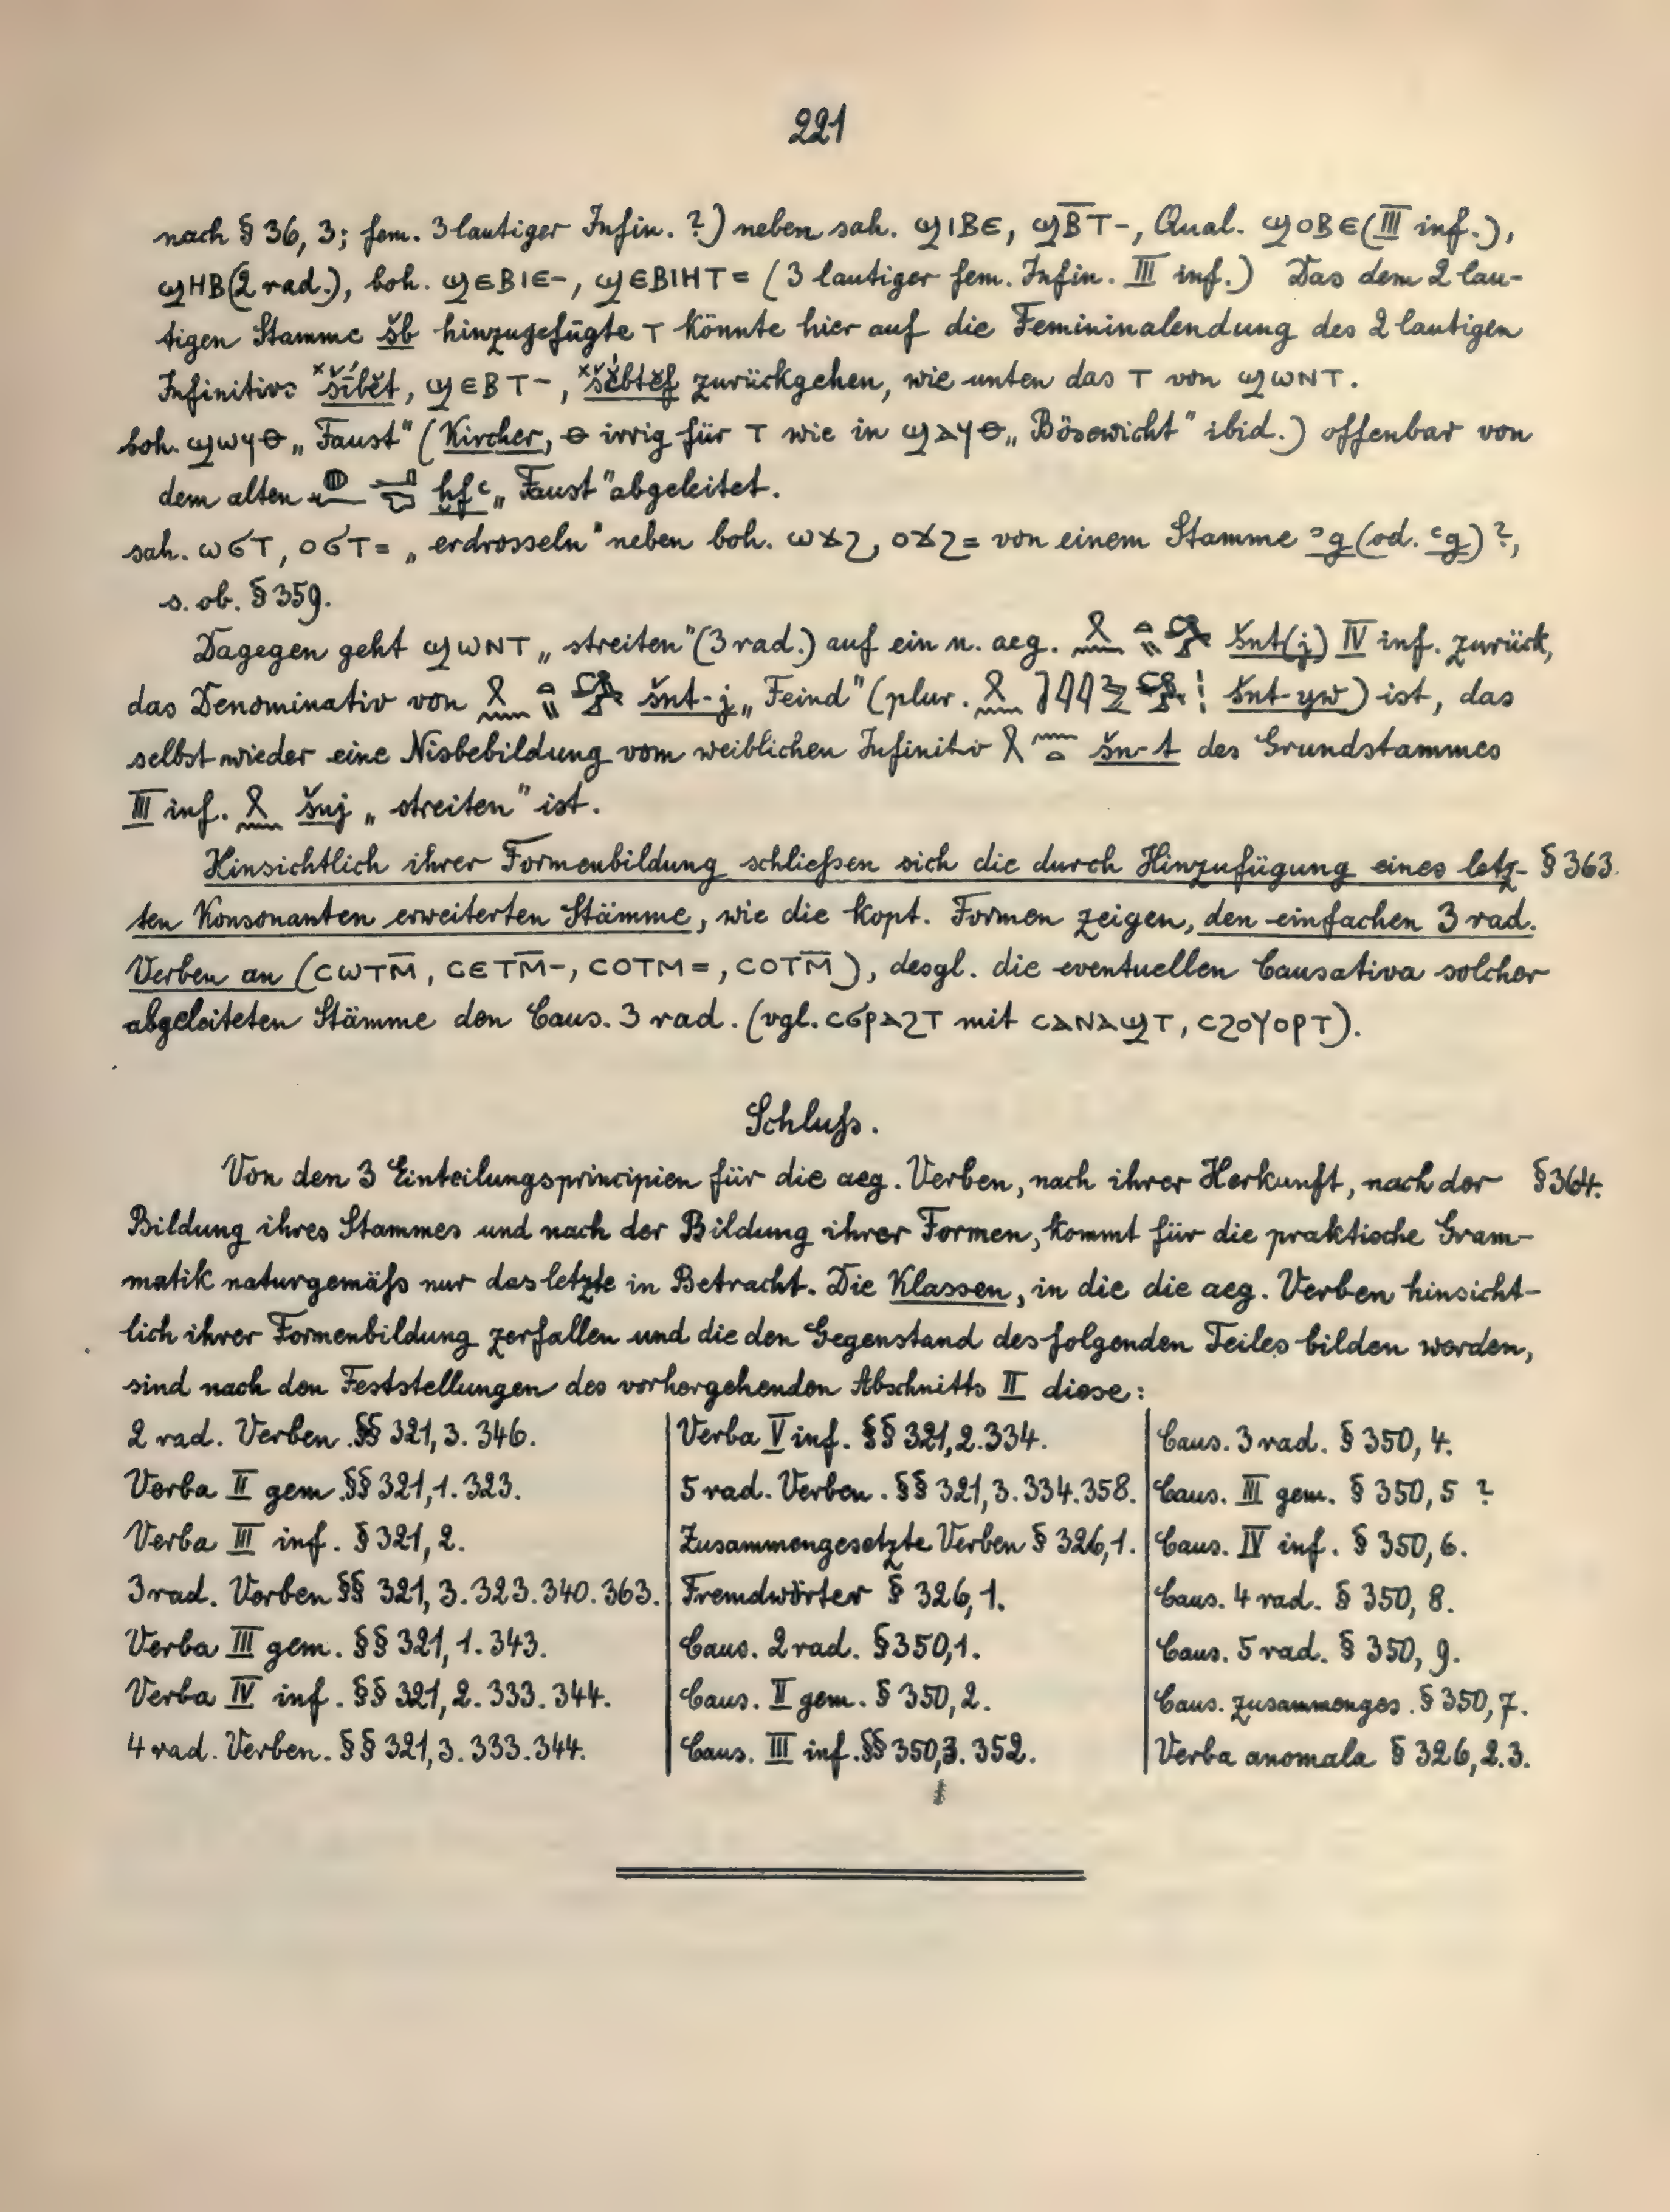 221
nach § 36, 3; fem. 3 lautiger Infin. ?) neben sah. ϣⲓⲃⲉ, ϣⲃ̅ⲧ-, Qual. ϣⲟⲃⲉ (III inf.),
ϣⲏⲃ (2 rad.), boh. ϣⲉⲃⲓⲉ-, ϣⲉⲃⲓⲏⲧ= (3 lautiger fem. Infin. III inf.) Das dem 2 lau-
tigen Stamme šb hinzugefügte ⲧ könnte hier auf die Femininalendung des 2 lautigen
Infinitivs ˣšĭ́bĕt, ϣⲉⲃⲧ-, ˣšĕ́btĕf zurückgehen, wie unten das ⲧ von ϣⲱⲛⲧ.
boh. ϣⲱⲩⲑ „Faust" (Kircher, ⲑ irrig für ⲧ wie in ϣⲁⲩⲑ „Bösewicht" ibid.) offenbar von
dem alten ḫfꜥ „Faust" abgeleitet.
sah. ⲱϭⲧ, ⲟϭⲧ= „erdrosseln" neben boh. ⲱϫϩ, ⲟϫϩ= von einem Stamme ꜣg (od. ꜥg) ?,
s. ob. § 359.
Dagegen geht ϣⲱⲛⲧ „streiten" (3 rad.) auf ein n. aeg. šnt(j) IV inf. zurück,
das Denominativ von šnt-j „Feind" (plur. šnt-yw) ist, das
selbst wieder eine Nisbebildung vom weiblichen Infinitiv šn-t des Grundstammes
III inf. šnj „streiten" ist.
Hinsichtlich ihrer Formenbildung schließen sich die durch Hinzufügung eines letz- § 363.
ten Konsonanten erweiterten Stämme, wie die kopt. Formen zeigen, den einfachen 3 rad.
Verben an (ⲥⲱⲧⲙ̅, ⲥⲉⲧⲙ̅-, ⲥⲟⲧⲙ=, ⲥⲟⲧⲙ̅), desgl. die eventuellen Causativa solcher
abgeleiteten Stämme den Caus. 3 rad. (vgl. ⲥϭⲣⲁϩⲧ mit ⲥⲁⲛⲁϣⲧ, ⲥϩⲟⲩⲟⲣⲧ).
Schluß.
Von den 3 Einteilungsprincipien für die aeg. Verben, nach ihrer Herkunft, nach der § 364.
Bildung ihres Stammes und nach der Bildung ihrer Formen, kommt für die praktische Gram-
matik naturgemäß nur das letzte in Betracht. Die Klassen, in die die aeg. Verben hinsicht-
lich ihrer Formenbildung zerfallen und die den Gegenstand des folgenden Teiles bilden werden,
sind nach den Feststellungen des vorhergehenden Abschnitts II diese:
2 rad. Verben §§ 321, 3. 346.
Verba II gem. §§ 321, 1. 323.
Verba III inf. § 321, 2.
3 rad. Verben §§ 321, 3. 323. 340. 363.
Verba III gem. §§ 321, 1. 343.
Verba IV inf. §§ 321, 2. 333. 344.
4 rad. Verben. §§ 321, 3. 333. 344.
Verba V inf. §§ 321, 2. 334.
5 rad. Verben. §§ 321, 3. 334. 358.
Zusammengesetzte Verben § 326, 1.
Fremdwörter § 326, 1.
Caus. 2 rad. § 350, 1.
Caus. II gem. § 350, 2.
Caus. III inf. §§ 350, 3. 352.
Caus. 3 rad. § 350, 4.
Caus. III gem. § 350, 5 ?
Caus. IV inf. § 350, 6.
Caus. 4 rad. § 350, 8.
Caus. 5 rad. § 350, 9.
Caus. zusammenges. § 350, 7.
Verba anomala § 326, 2. 3.